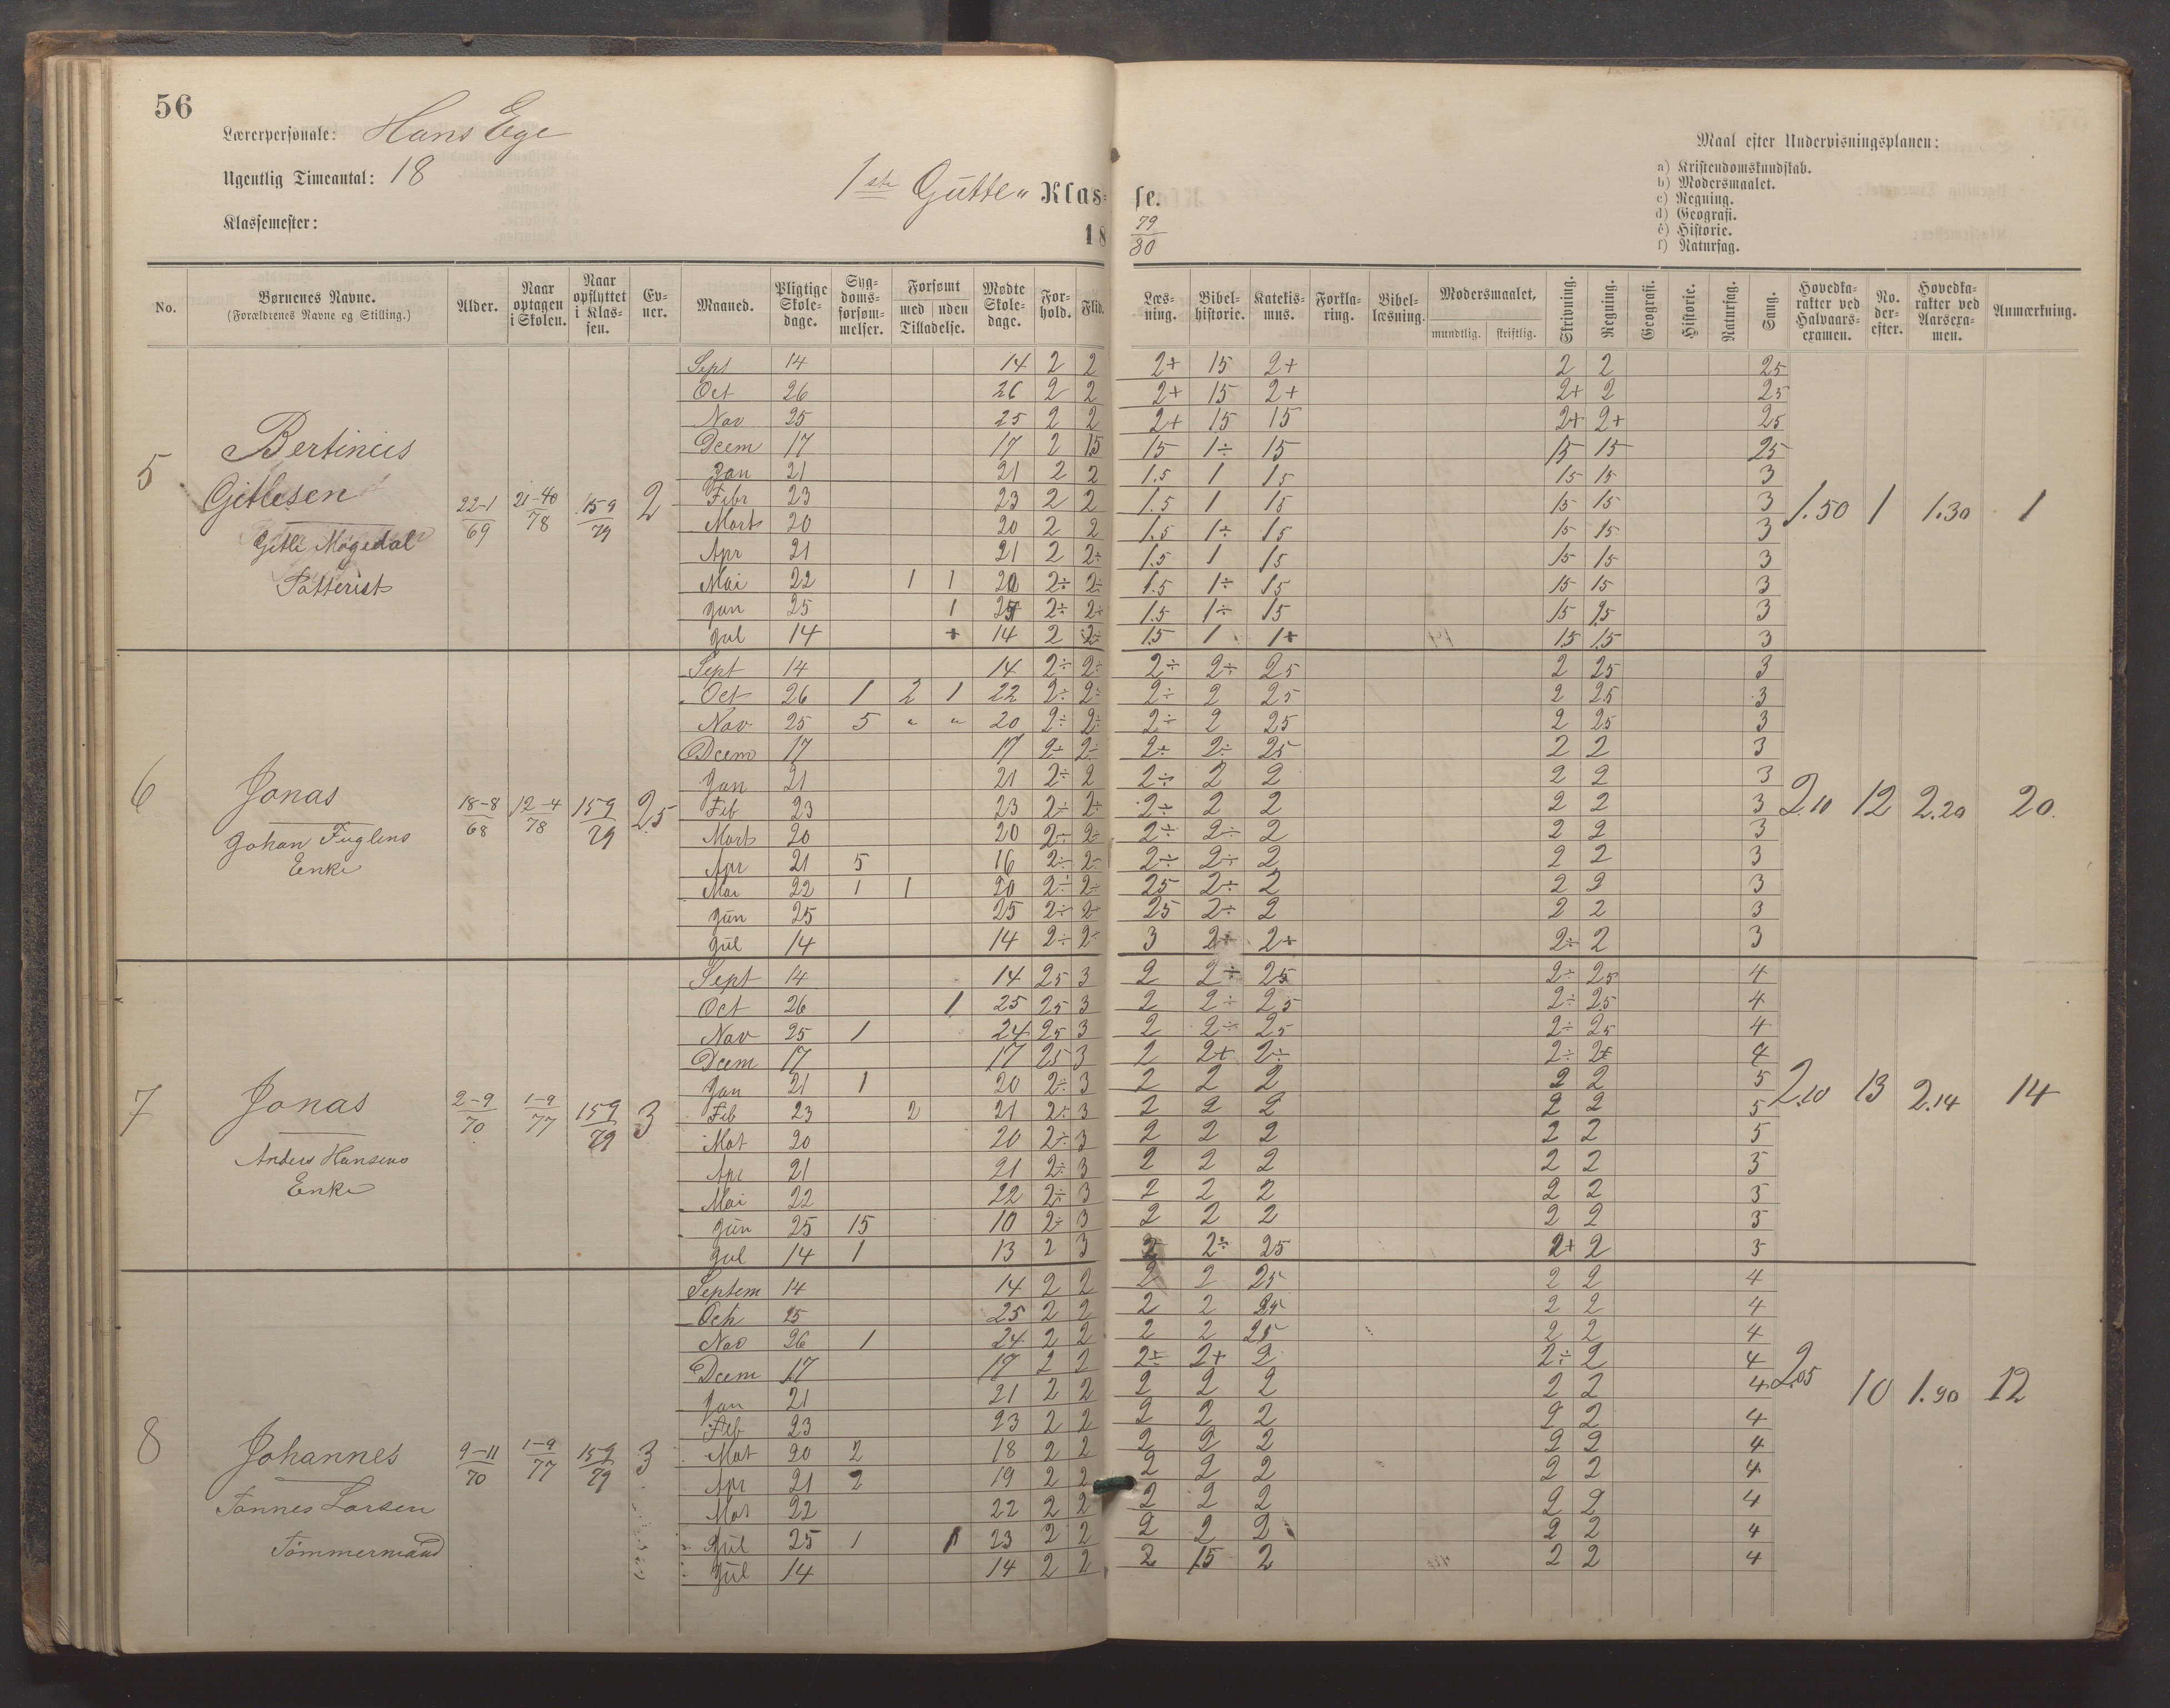 56
Lærerpersonale: Hans Ege
Ugentlig Timeantal: 18
Klassemester:
1ste Gutte „ Klas= se.
18 79/80
Maal efter Undervisningsplanen:
a) Kristendomskundskab.
b) Modersmaalet.
c) Regning.
d) Geografi.
e) Historie.
f) Naturfag.
No. | Børnenes Navne. (Forældrenes Navne og Stilling.) | Alder. | Naar optagen i Skolen. | Naar opflyttet i Klassen. | Evner. | Maaned. | Pligtige Skoledage. | Sygdomsforsømmelser. | Forsømt med | uden Tilladelse. | Mødte Skoledage. | Forhold. | Flid. | Læsning. | Bibelhistorie. | Katekismus. | Forklaring. | Bibellæsning. | Modersmaalet, mundtlig. | skriftlig. | Skrivning. | Regning. | Geografi. | Historie. | Naturfag. | Sang. | Hovedkarakter ved Halvaarsexamen. | No. derefter. | Hovedkarakter ved Aarsexamen. | Anmærkning.
5 Bertinius Gitlesen
Gitle Møgedal
22-1/69 15 9/79 2 1.50 1 1.30 1
Sept 14 14 2 2 2+ 15 2+ 2 2 25
Oct 26 26 2 2 2+ 15 2+ 2+ 2 25
Nov 25 25 2 2 2+ 15 15 2+ 2+ 25
Dcem 17 17 2 15 15 1÷ 15 15 15 25
Jan 21 21 2 2 1.5 1 15 15 15 3
Febr 23 23 2 2 1.5 1 15 15 15 3
Marts 20 20 2 2 1.5 1÷ 15 15 15 3
Apr 21 21 2 2÷ 1.5 1 15 15 15 3
Mai 22 1 1 20 2÷ 2÷ 1.5 1÷ 15 15 15 3
Jun 25 1 2÷ 2÷ 1.5 1÷ 15 15 15 3
Jul 14 14 2 2÷ 15 1 1+ 15 15 3
6 Jonas
Johan Fuglens
Enke
18-8/68 12-4/78 15 9/79 2.5 2.10 12 2.20 20.
Sept 14 14 2÷ 2÷ 2÷ 2÷ 25 2 25 3
Oct 26 1 2 1 22 2÷ 2÷ 2÷ 2 25 2 25 3
Nov 25 5 „ „ 20 2÷ 2÷ 2÷ 2 25 2 25 3
Dcem 17 17 2÷ 2÷ 2÷ 2÷ 25 2 2 3
Jan 21 21 2÷ 2 2÷ 2 2 2 2 3
Feb 23 23 2÷ 2÷ 2÷ 2 2 2 2 3
Marts 20 20 2÷ 2÷ 2÷ 2÷ 2 2 2 3
Apr 21 5 16 2÷ 2÷ 2÷ 2÷ 2 2 2 3
Mai 22 1 1 20 2÷ 2÷ 25 2÷ 2 2 2 3
Jun 25 25 2÷ 2÷ 25 2÷ 2 2 2 3
Jul 14 14 2÷ 2÷ 3 2+ 2+ 2÷ 2 3
7 Jonas
Anders Hansens
Enke
2-9/70 1-9/77 15 9/79 3 2.10 13 2.14 14
Sept 14 14 25 3 2 2÷ 25 2÷ 25 4
Oct 26 1 25 25 3 2 2÷ 25 2÷ 25 4
Nov 25 1 24 25 3 2 2÷ 25 2÷ 25 4
Dcem 17 17 25 3 2 2+ 2÷ 2÷ 2+ 4
Jan 21 1 20 2÷ 3 2 2 2 2 2 5
Feb 23 2 21 2÷ 3 2 2 2 2 2 5
Mat 20 20 2÷ 3 2 2 2 2 2 5
Apr 21 21 2÷ 3 2 2 2 2 2 5
Mai 22 22 2÷ 3 2 2 2 2 2 5
Jun 25 15 10 2÷ 3 2 2 2 2 2 5
Jul 14 1 13 2 3 2÷ 25 2+ 2 5
8 Johannes
Tønnes Larsen
Tømmermand
9-11/70 1-9/77 15 9/79 3 2.05 10 1.90 12
Septem 14 14 2 2 2 2 25 2 2 4
Octb 25 25 2 2 2 2 25 2 2 4
Nov 26 1 24 2 2 2 2 25 2 2 4
Dcem 17 17 2 2 2÷ 2+ 2 2÷ 2 4
Jan 21 21 2 2 2 2 2 2 2 4
Feb 23 23 2 2 2 2 2 2 2 4
Mat 20 2 18 2 2 2 2 2 2 2 4
Apr 21 2 19 2 2 2 2 2 2 2 4
Mai 22 22 2 2 2 2 2 2 2 4
Jul 25 1 1 23 2 2 2 2 2 2 2 4
Jul 14 14 2 2 2 15 2 2 2 4